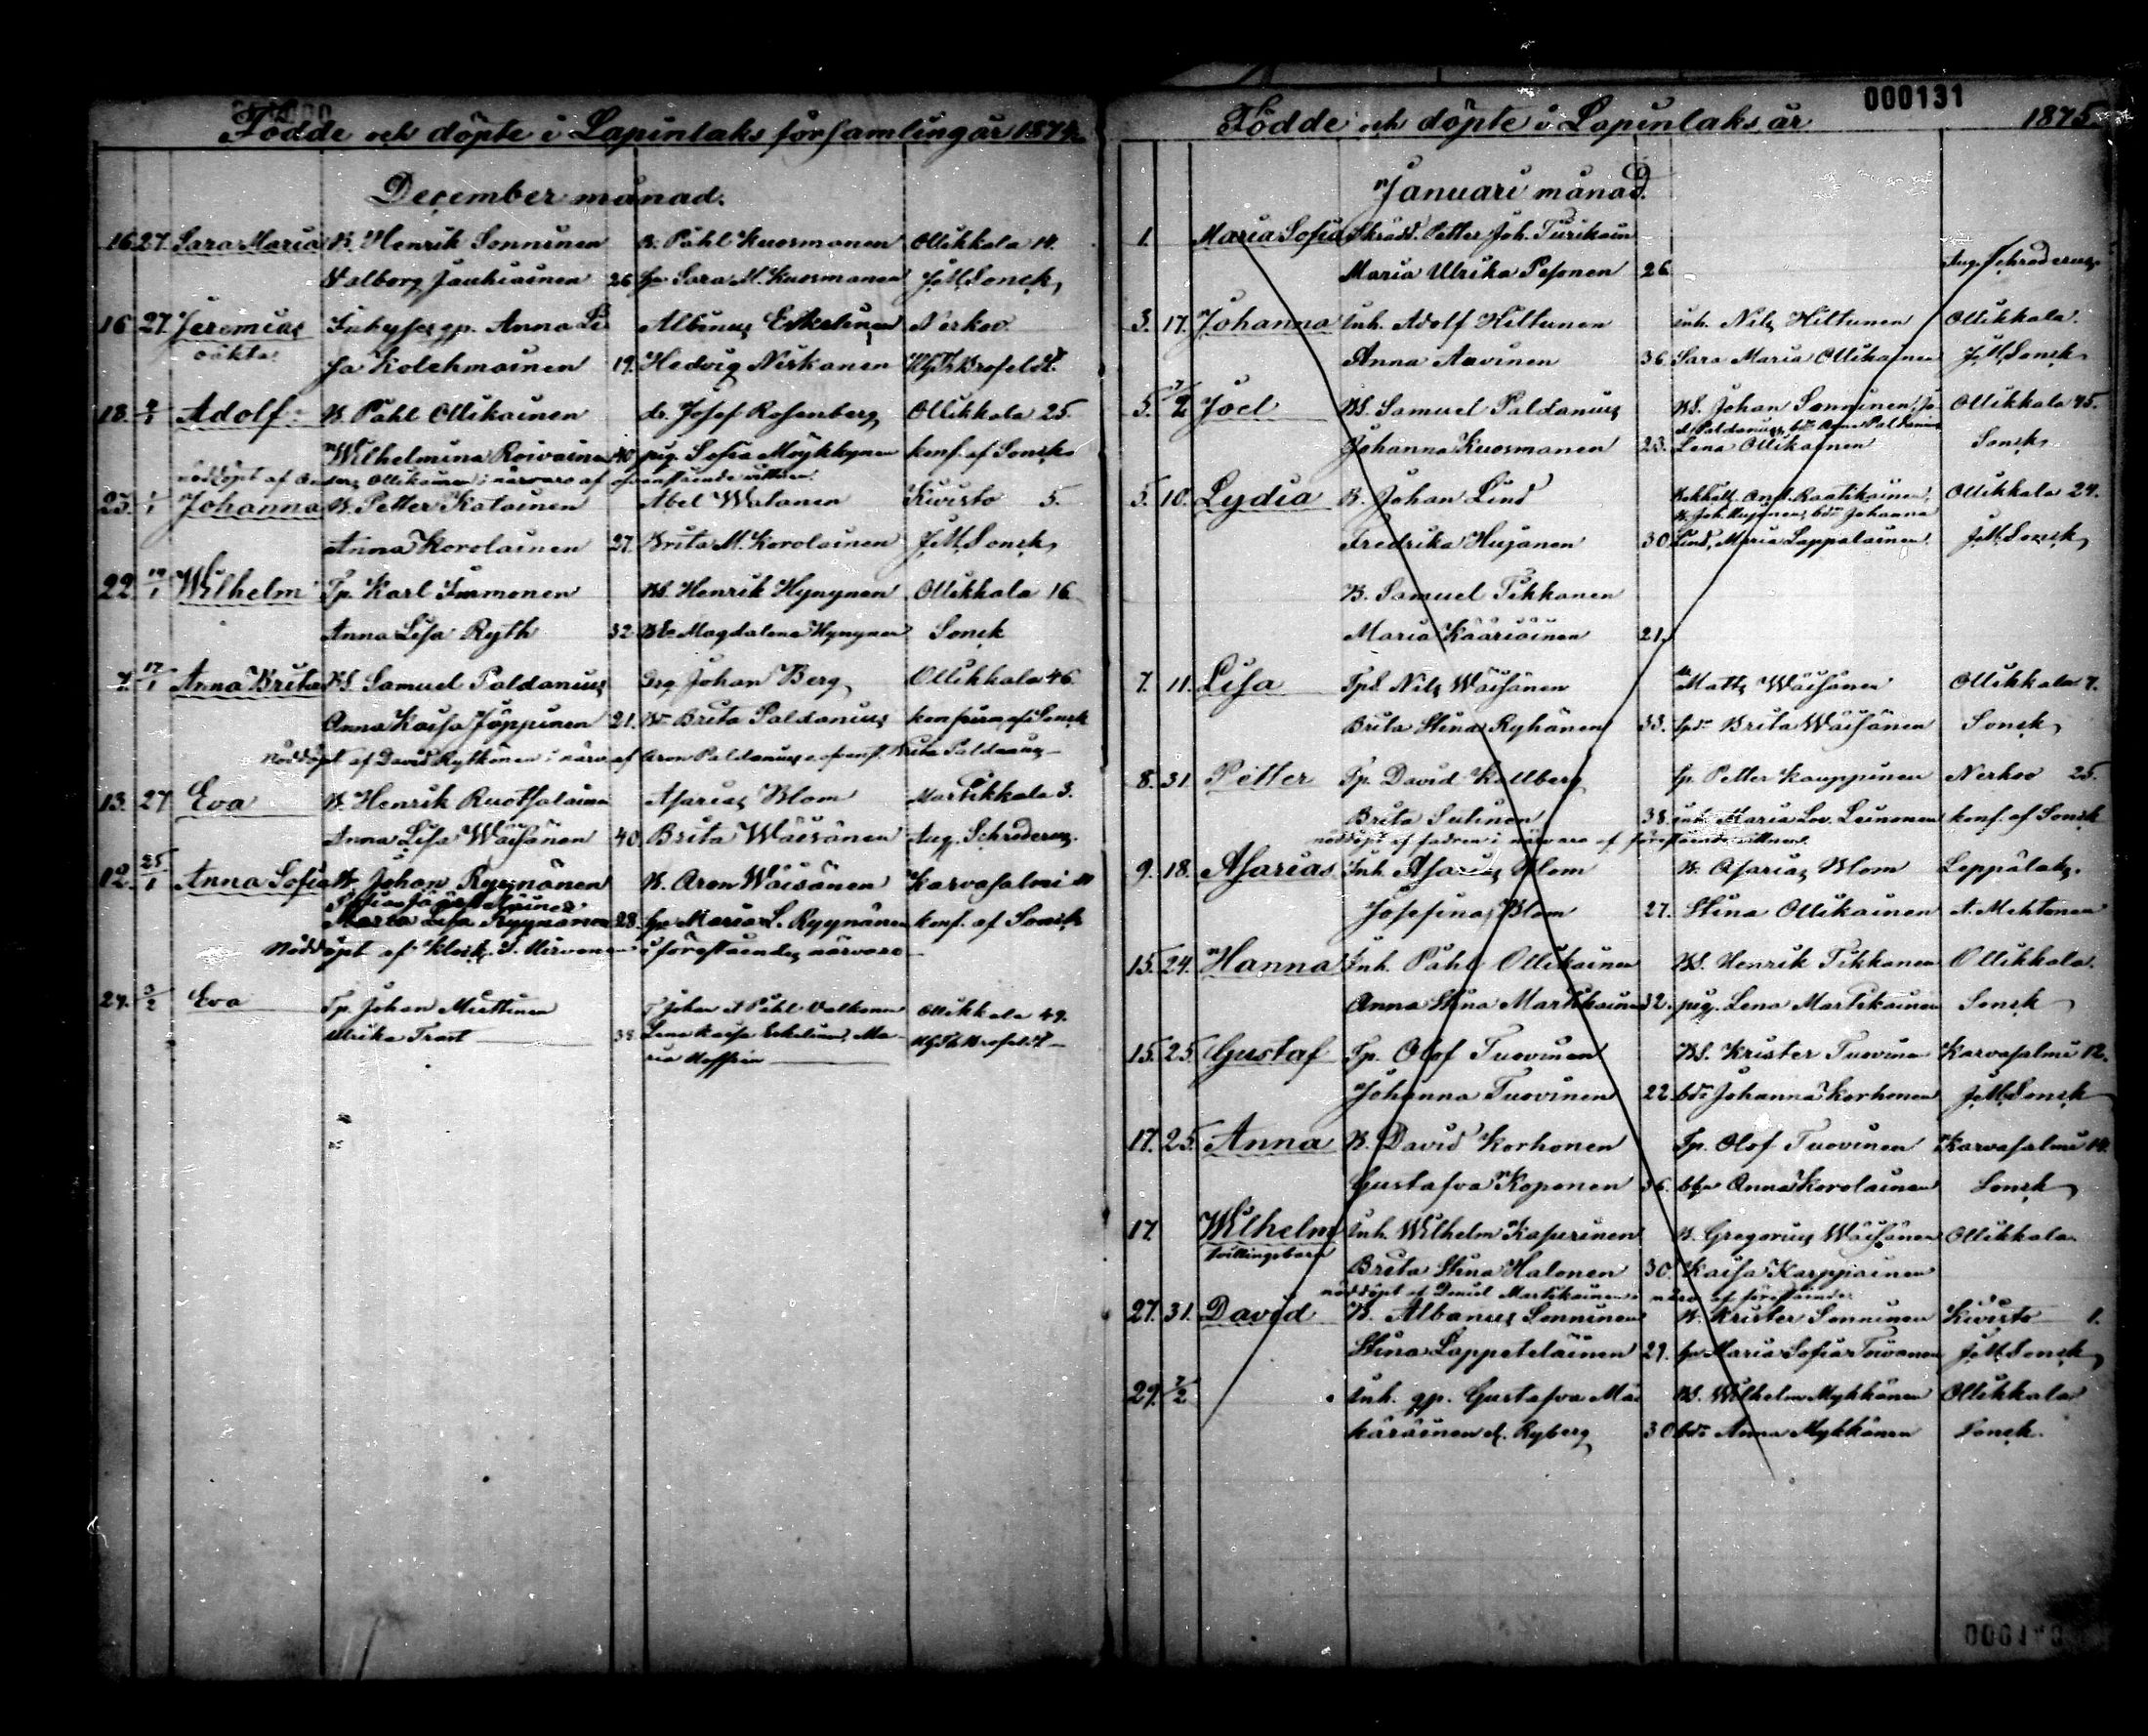 Födde och döpte i Lapinlaks församling år 1874.
December månad.
16. 27. Sara Maria B. Henrik Sonninen B. Påhl Kuosmanen Ollikkala 14.
Valborg Jauhiainen 26 hu Sara M. Kuosmanen J.M. Sonck
16. 27. Jeremias Inhyses gp. Anna Li Albinus Eskelinen Nerkoo
oäkta sa Kolehmainen 19. Hedvig Niskanen Brofeldt.
18. Adolf B. Påhl Ollikainen dr. Josef Rosenberg Ollikkala 25.
Wilhelmina Roivainen 40 pig. Sofia Möykkynen konf. af Sonck
nöddöpt af Anders Ollikainen i närvaro af ofvanstående vittnen.
25. 1/1 Johanna B. Petter Katainen Abel Watanen Kivisto 5.
Anna Korolainen 27. Brita M. Korolainen J.M. Sonck
22. Wilhelm Tp. Karl Immonen BS. Henrik Hynynen Ollikkala 16
Anna Lisa Ryth 32. Magdalena Hynynen Sonck
7. 17/1 Anna Brita BS. Samuel Paldanius Johan Berg Ollikkala 46.
Anna Kaisa Jäppinen 21. Brita Paldanius konf. af Sonck
Nöddöpt af David Rytkönen i närv. af Aron Paldanius Brita Paldanius
13. 27 Eva B. Henrik Ruotsalainen Asarias Blom Martikkala 3.
Anna Lisa Wäisänen 40. Brita Wäisänen Aug. Schroderus.
12. 25/1 Anna Sofia B. Johan Ryynänen B. Aron Wäisänen Karvasalmi
Maria Lisa Ryynänen 28. hu Maria L. Ryynänen konf. af Sonck
Nöddöpt af klock. S. Hirvonen i föreståendes närvaro
27. 3/2 Eva Tp. Johan Miettinen Johan o Påhl Valkonen Ollikkala 49.
Ulrika Trast 38 Lena Kaisa Eskelinen, Ma-
ria
000131
Födde och döpte i Lapinlaks år 1875.
Januari månad.
1. Maria Sofia Skrädd. Petter Joh. Turikain
Maria Ulrika Pesonen 26 Aug. Schroderus
3. 17. Johanna Inh. Adolf Hiltunen inh. Nils Hiltunen Ollikkala.
Anna Aavinen 36. Sara Maria Ollikainen J.M. Sonck
5. 7/2 Joel BS. Samuel Paldanius BS. Johan Sonninen, Ollikkala 45.
Johanna Kuosmanen 23. Lena Ollikainen Sonck
5. 10. Lydia B. Johan Lind And. Raatikainen, Ollikkala 24.
B. Joh. Hujanen, bdr Johanna
Fredrika Hujanen 30 Lind, Maria Lappalainen. J.M. Sonck
B. Samuel Tikkanen
Maria Kääriäinen 21.
7. 11. Lisa Nils Wäisänen Matts Wäisänen Ollikkala 7.
Brita Stina Ryhänen 33. Brita Wäisänen Sonck
8. 31 Petter Tp. David Kallberg tp. Petter Kauppinen Nerkoo 25.
Brita Sutinen 38. Maria Lov. Leinonen konf. af Sonck
nöddöpt af fadren i närvaro af förestående vittnen.
9. 18. Asarias Inh. Asarias Blom B. Asarias Blom Leppälaks.
Josefina Blom 27. Stina Ollikainen A. Mehtonen
15. 24. Hanna Inh. Påhl Ollikainen BS. Henrik Tikkanen Ollikkala.
Anna Stina Martikainen 32. pig. Lena Martikainen Sonck
15. 25 Gustaf Tp. Olof Tuovinen BS. Krister Tuovinen Karvasalmi 12.
Johanna Tuovinen 22. bdr Johanna Korhonen J.M. Sonck
17. 25. Anna B. David Korhonen Tp. Olof Tuovinen Karvasalmi 14.
Gustafva Koponen 36. Anna Korolainen Sonck
17 Wilhelm Inh. Wilhelm Kasurinen B. Gregorius Wäisänen Ollikkala
tvillingsbarn Brita Stina Halonen 30. Kaisa Karppainen
nöddöpt af Daniel Martikainen i närv. af förestående.
27. 31. David B. Albanus Sonninen B. Krister Sonninen Kivisto 1.
Stina Lappeteläinen 29. hu Maria Sofia Toivanen J.M. Sonck
29. 7/2 Inh. gp. Gustafva Mä BS. Wilhelm Mykkänen Ollikkala
käräinen el. Ryberg 30 bdr Anna Mykkänen Sonck.